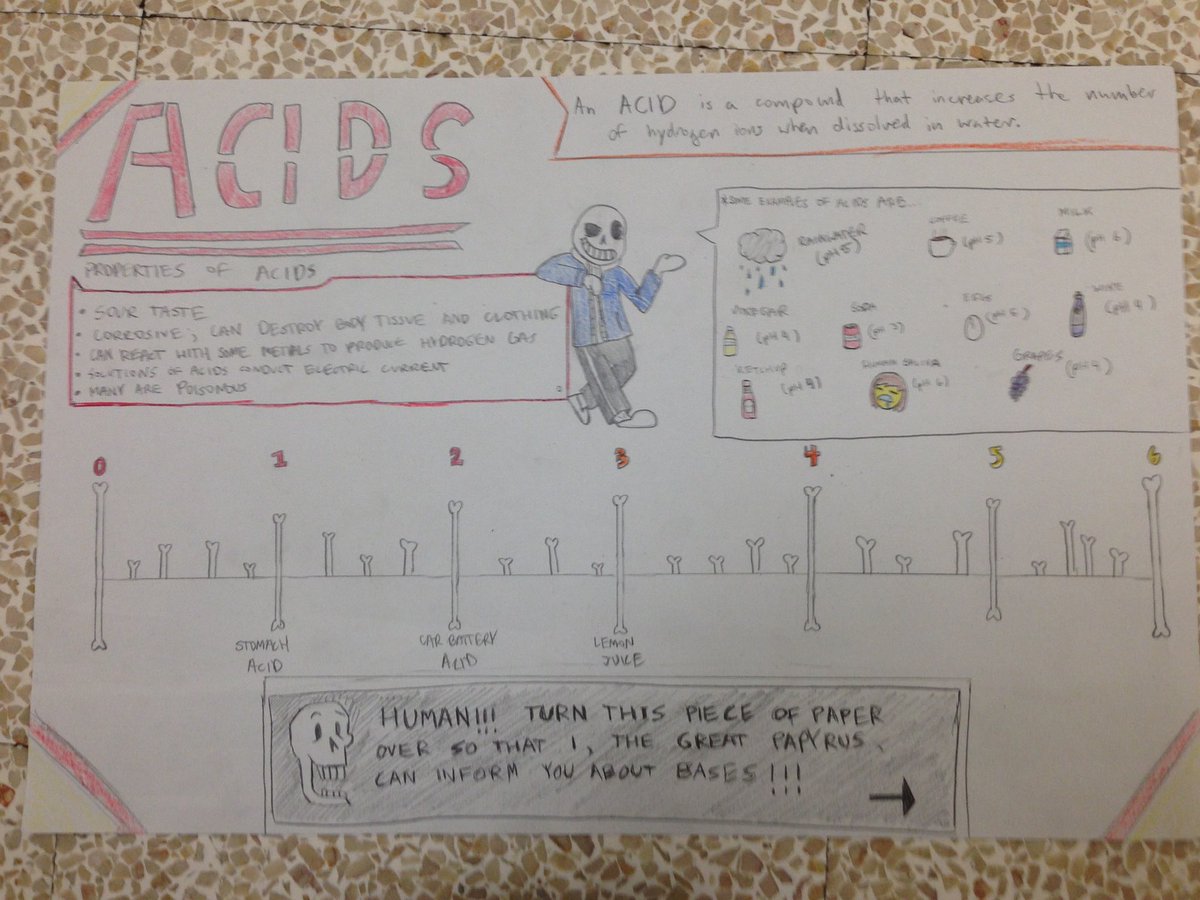 ACIDS
An ACID is a compound that increases the number
of hydrogen ions when dissolved in water.
PROPERTIES OF ACIDS
• SOUR TASTE
• CORROSIVE; CAN DESTROY BODY TISSUE AND CLOTHING
• CAN REACT WITH SOME METALS TO PRODUCE HYDROGEN GAS
• SOLUTIONS OF ACIDS CONDUCT ELECTRIC CURRENT
• MANY ARE POISONOUS
*SOME EXAMPLES OF ACIDS ARE...
RAINWATER
(pH 5)
COFFEE
(pH 5)
MILK
(pH 6)
VINEGAR
SODA
EGGS
WINE
(pH 4)
KETCHUP
HUMAN SALIVA
(pH 6)
GRAPES
(pH 4)
0 1 2 3 4 5 6
STOMACH
ACID
CAR BATTERY
ACID
LEMON
JUICE
HUMAN!!! TURN THIS PIECE OF PAPER
OVER SO THAT I, THE GREAT PAPYRUS,
CAN INFORM YOU ABOUT BASES!!!